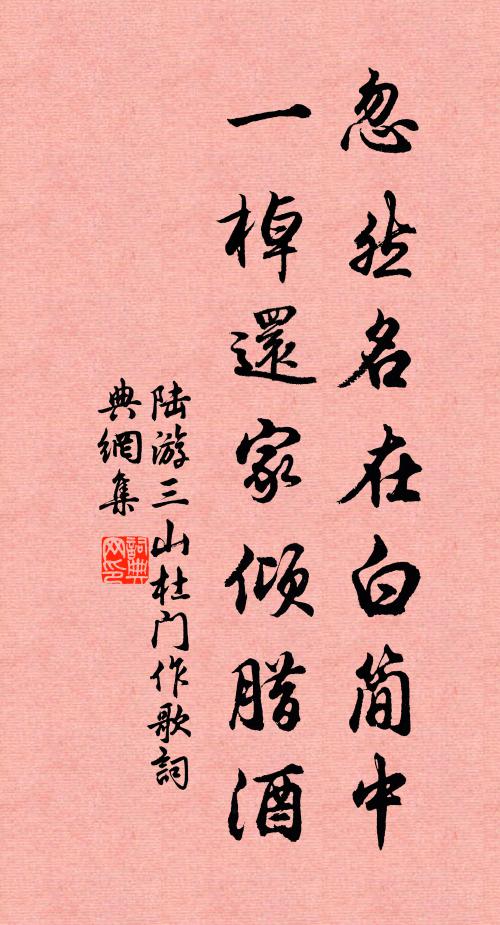 忽然名在白简中
一棹還家倾腊酒
陆游三山杜门作歌詞
典網集
詞典網印